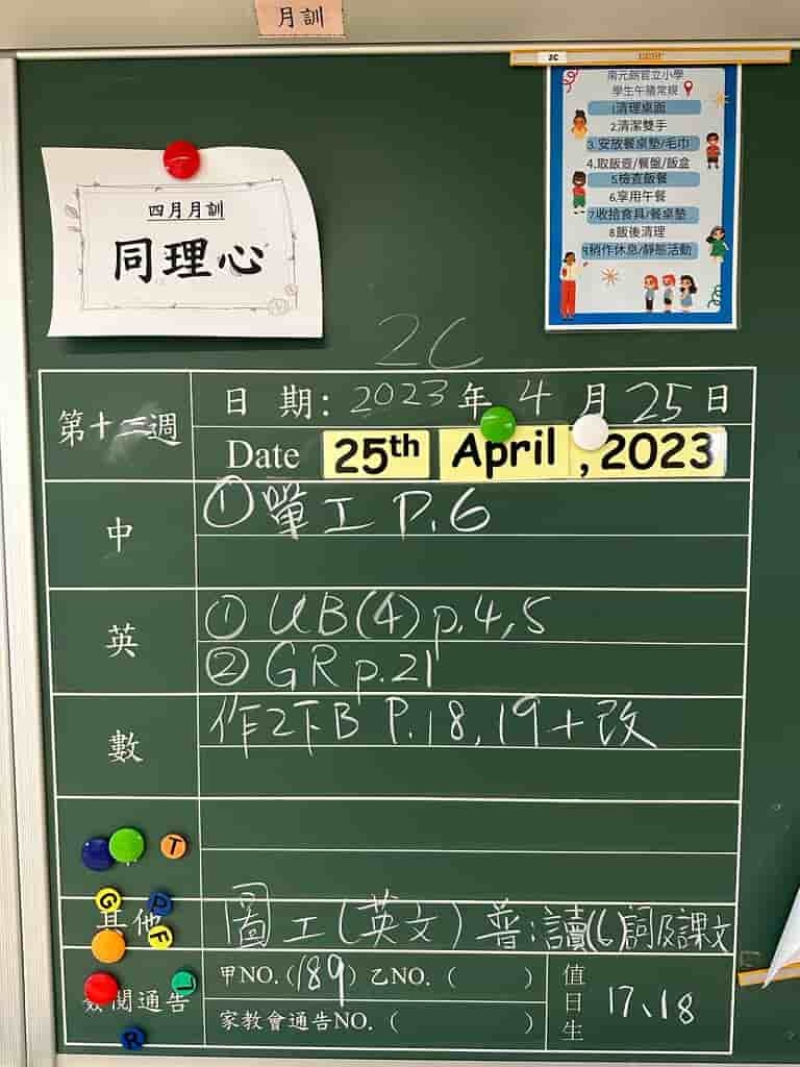 月訓
2C
南元朗官立小學
學生午膳常規
1清理桌面
2清潔雙手
3.安放餐桌墊/毛巾
4.取飯壺/餐盤/飯盒
5檢查飯餐
6.享用午餐
7.收拾食具/餐桌墊
8飯後清理
9稍作休息/靜態活動
四月月訓
同理心
2C
第十三週
日 期: 2023 年 4 月 25 日
Date 25th April , 2023
中
① 單工 P.6
英
① UB(4) p.4,5
② GR p.21
數
作2下B P.18,19+改
T
G
P
F
其他
圖工(英文) 普:讀(6)詞及課文
L
R
簽閱通告
甲NO.(189) 乙NO.( )
家教會通告NO.( )
值日生
17、18